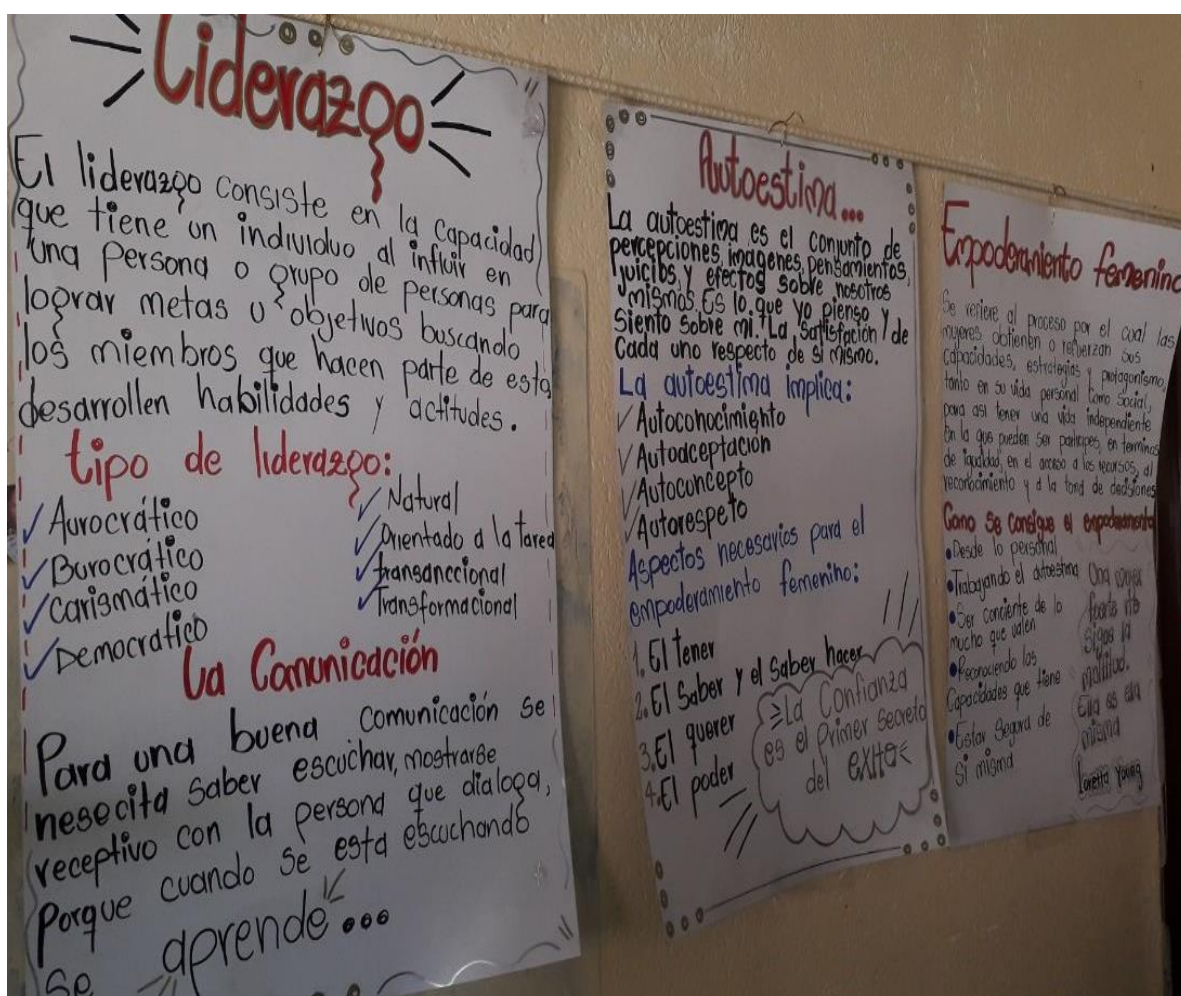 Liderazgo
El liderazgo consiste en la capacidad
que tiene un individuo al influir en
una persona o grupo de personas para
lograr metas u objetivos buscando
los miembros que hacen parte de esta
desarrollen habilidades y actitudes.
tipo de liderazgo:
Aurocrático
Burocrático
Carismático
Democratico
Natural
Orientado a la tarea
transanccional
Transformacional
La Comunicación
Para una buena comunicación se
nesecita saber escuchar, mostrarse
receptivo con la persona que dialoga,
porque cuando se esta escuchando
se aprende...
Autoestima...
La autoestima es el conjunto de
percepciones, imagenes, pensamientos,
juicios, y efectos sobre nosotros
mismos. Es lo que yo pienso y
siento sobre mi. La satisfación de
cada uno respecto de si mismo.
La autoestima implica:
Autoconocimiento
Autoaceptación
Autoconcepto
Autorespeto
Aspectos necesarios para el
empoderamiento femenino:
1. El tener
2. El saber y el saber hacer
3. El querer
4. El poder
La Confianza
es el primer secreto
del exito
Empoderamiento femenino
Se refiere al proceso por el cual las
mujeres obtienen o refuerzan sus
capacidades, estrategias y protagonismo,
tanto en su vida personal como social,
para asi tener una vida independiente
en la que pueden ser participes, en terminos
de igualdad, en el acceso a los recursos, al
reconocimiento y a la toma de decisiones
Como se consigue el
Desde lo personal
Trabajando el autoestima
Ser conciente de lo
mucho que valen
Reconociendo las
capacidades que tiene
Estar segura de
si misma
Una mujer
fuerte no
sigue la
multitud.
Ella es ella
misma
Loretta Young